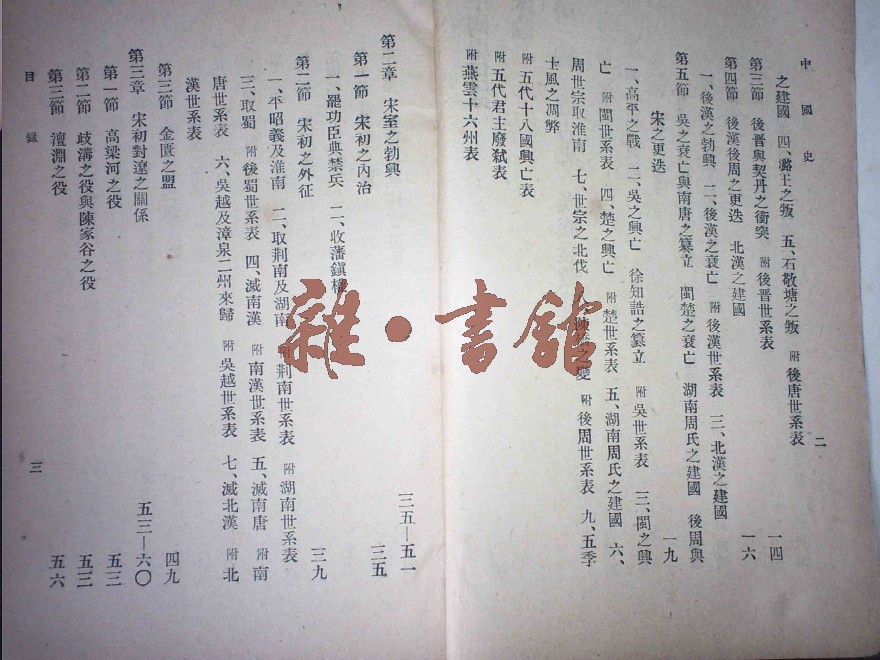 中國史
二
之建國　四、潞王之叛　五、石敬塘之叛　附後唐世系表
第三節　後晉與契丹之衝突　附後晉世系表　一四
第四節　後漢後周之更迭　北漢之建國　一六
一、後漢之勃興　二、後漢之衰亡　附後漢世系表　三、北漢之建國
第五節　吳之衰亡與南唐之篡立　閩楚之衰亡　湖南周氏之建國　後周與
宋之更迭　一九
一、高平之戰　二、吳之興亡　徐知誥之篡立　附吳世系表　三、閩之興
亡　附閩世系表　四、楚之興亡　附楚世系表　五、湖南周氏之建國　六、
周世宗取淮南　七、世宗之北伐　之變　附後周世系表　九、五季
士風之凋弊
附五代十八國興亡表
附五代君主廢弒表
附燕雲十六州表
第二章　宋室之勃興　三五—五一
第一節　宋初之內治　三五
一、罷功臣典禁兵　二、收藩鎮權
第二節　宋初之外征　三九
一、平昭義及淮南　二、取荆南及湖南　附荆南世系表　附湖南世系表
三、取蜀　附後蜀世系表　四、滅南漢　附南漢世系表　五、滅南唐　附南
唐世系表　六、吳越及漳泉二州來歸　附吳越世系表　七、滅北漢　附北
漢世系表
第三節　金匱之盟　四九
第三章　宋初對遼之關係　五三—六〇
第一節　高梁河之役　五三
第二節　歧溝之役與陳家谷之役　五三
第三節　澶淵之役　五六
目錄
三
雜·書館